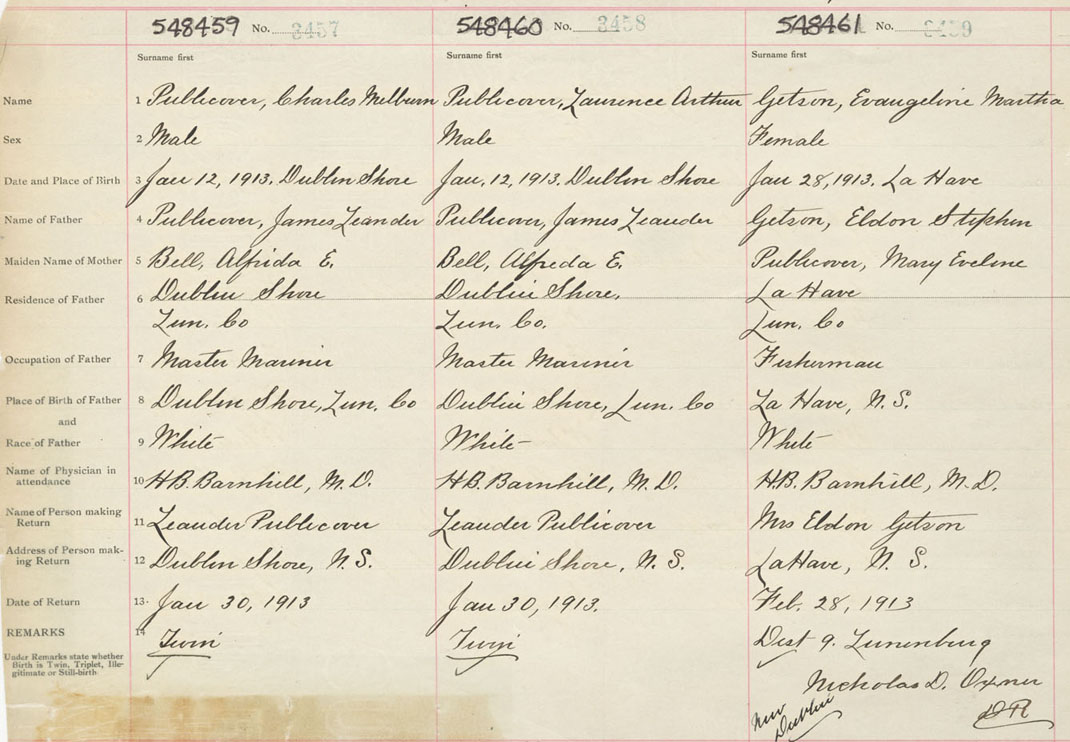 548459 No. 3457 548460 No. 3458 548461 No. 3459
Surname first Surname first Surname first
Name 1 Publicover, Charles Melburn Publicover, Laurence Arthur Getson, Evangeline Martha
Sex 2 Male Male Female
Date and Place of Birth 3 Jan 12, 1913. Dublin Shore Jan. 12, 1913. Dublin Shore Jan 28, 1913. La Have
Name of Father 4 Publicover, James Leander Publicover, James Leander Getson, Eldon Stephen
Maiden Name of Mother 5 Bell, Alfrida E. Bell, Alfreda E. Publicover, Mary Eveline
Residence of Father 6 Dublin Shore Dublin Shore, La Have
Lun. Co Lun. Co. Lun. Co
Occupation of Father 7 Master Mariner Master Mariner Fisherman
Place of Birth of Father 8 Dublin Shore, Lun. Co Dublin Shore, Lun. Co La Have, N. S.
and
Race of Father 9 White White White
Name of Physician in
attendance 10 H.B. Barnhill, M.D. H.B. Barnhill, M.D. H.B. Barnhill, M.D.
Name of Person making
Return 11 Leander Publicover Leander Publicover Mrs Eldon Getson
Address of Person mak-
ing Return 12 Dublin Shore, N. S. Dublin Shore, N. S. LaHave, N. S.
Date of Return 13. Jan 30, 1913 Jan 30, 1913. Feb. 28, 1913
REMARKS 14 Twin Twin Dist 9. Lunenburg
Under Remarks state whether
Birth is Twin, Triplet, Ille-
gitimate or Still-birth
Nicholas D. Oxner
New
Dublin
DR